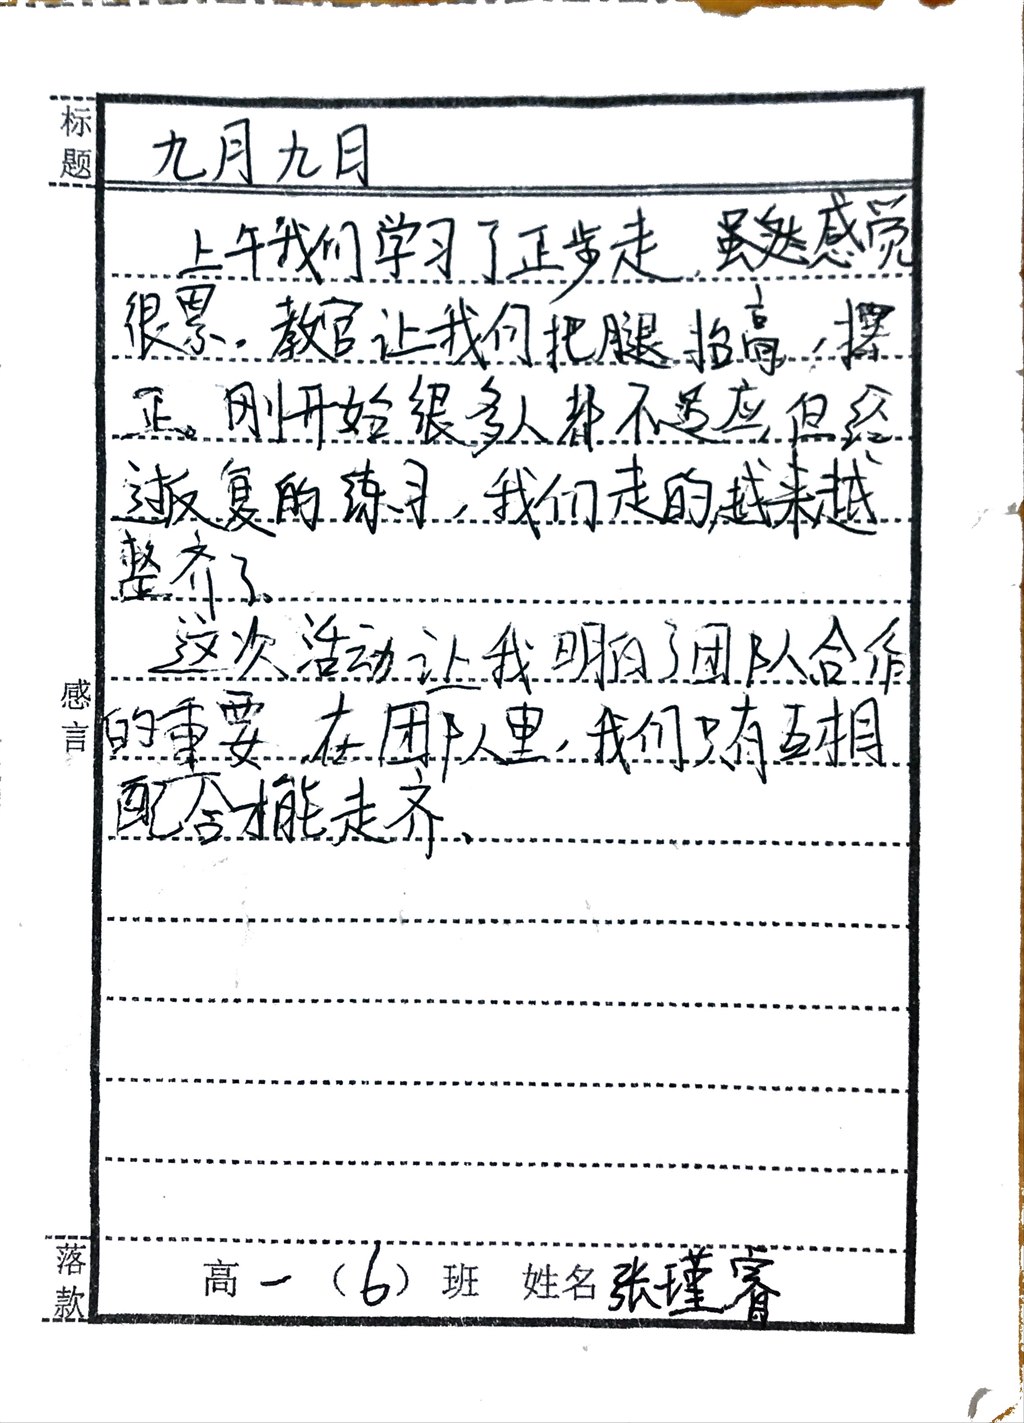 标题
九月九日
上午我们学习了正步走,虽然感觉
很累。教官让我们把腿抬高,摆
正。刚开始很多人都不适应,但经
过反复的练习,我们走的越来越
整齐了。
这次活动让我明白了团队合作
的重要,在团队里,我们只有互相
配合才能走齐。
感言
落款
高一(6)班 姓名张瑾睿